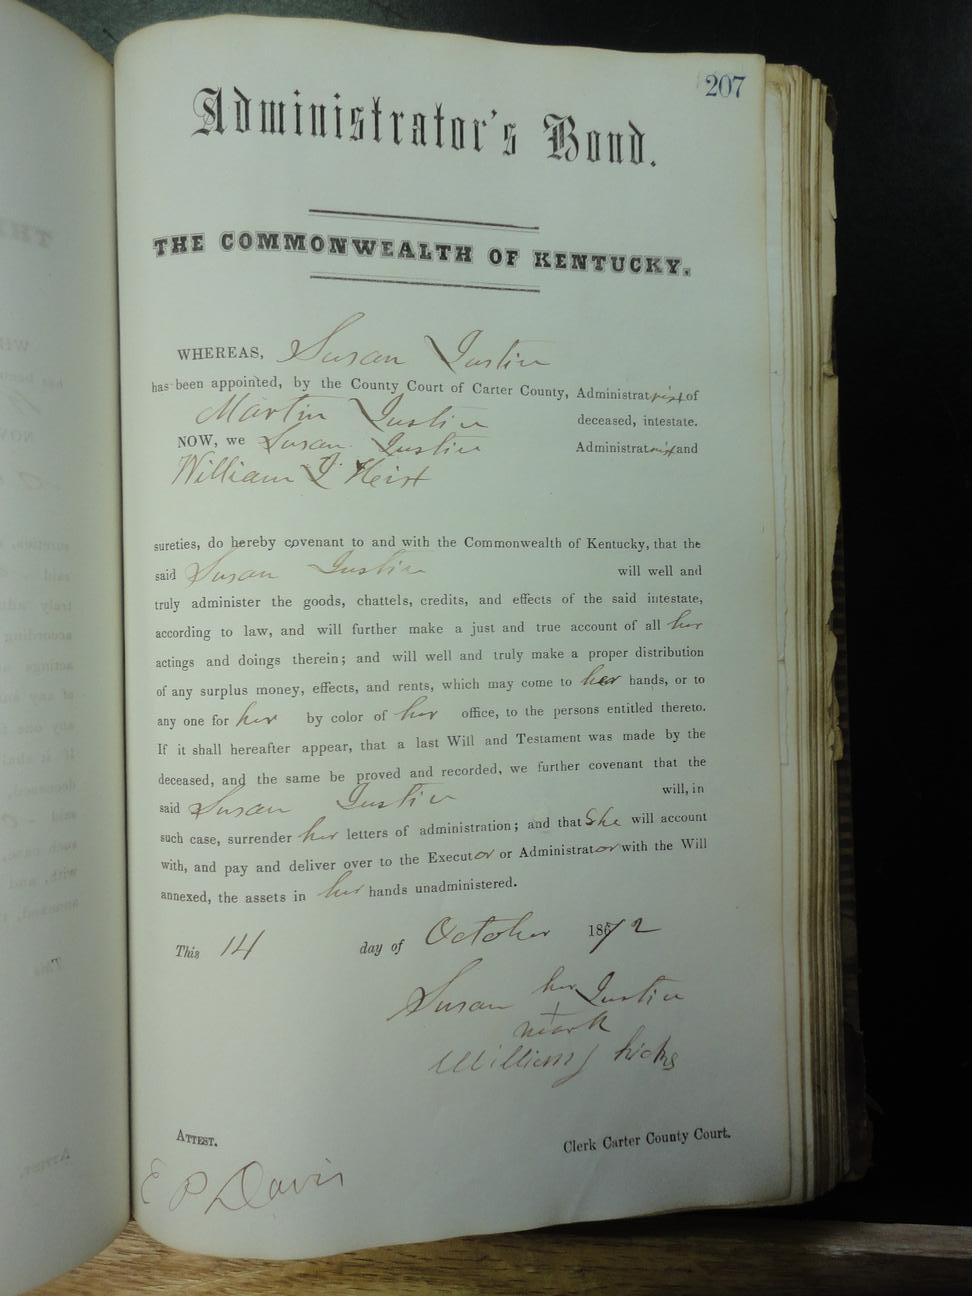 207
Administrator's Bond.
THE COMMONWEALTH OF KENTUCKY.
WHEREAS, Susan Justin
has been appointed, by the County Court of Carter County, Administratrix of
Martin Justin deceased, intestate.
NOW, we Susan Justin Administratrix and
William J.
sureties, do hereby covenant to and with the Commonwealth of Kentucky, that the
said Susan Justin will well and
truly administer the goods, chattels, credits, and effects of the said intestate,
according to law, and will further make a just and true account of all her
actings and doings therein; and will well and truly make a proper distribution
of any surplus money, effects, and rents, which may come to her hands, or to
any one for her by color of her office, to the persons entitled thereto.
If it shall hereafter appear, that a last Will and Testament was made by the
deceased, and the same be proved and recorded, we further covenant that the
said Susan Justin will, in
such case, surrender her letters of administration; and that She will account
with, and pay and deliver over to the Executor or Administrator with the Will
annexed, the assets in her hands unadministered.
This 14 day of October 1872
Susan her Justin
+
mark
William J hicks
ATTEST.
Clerk Carter County Court.
E P Davis